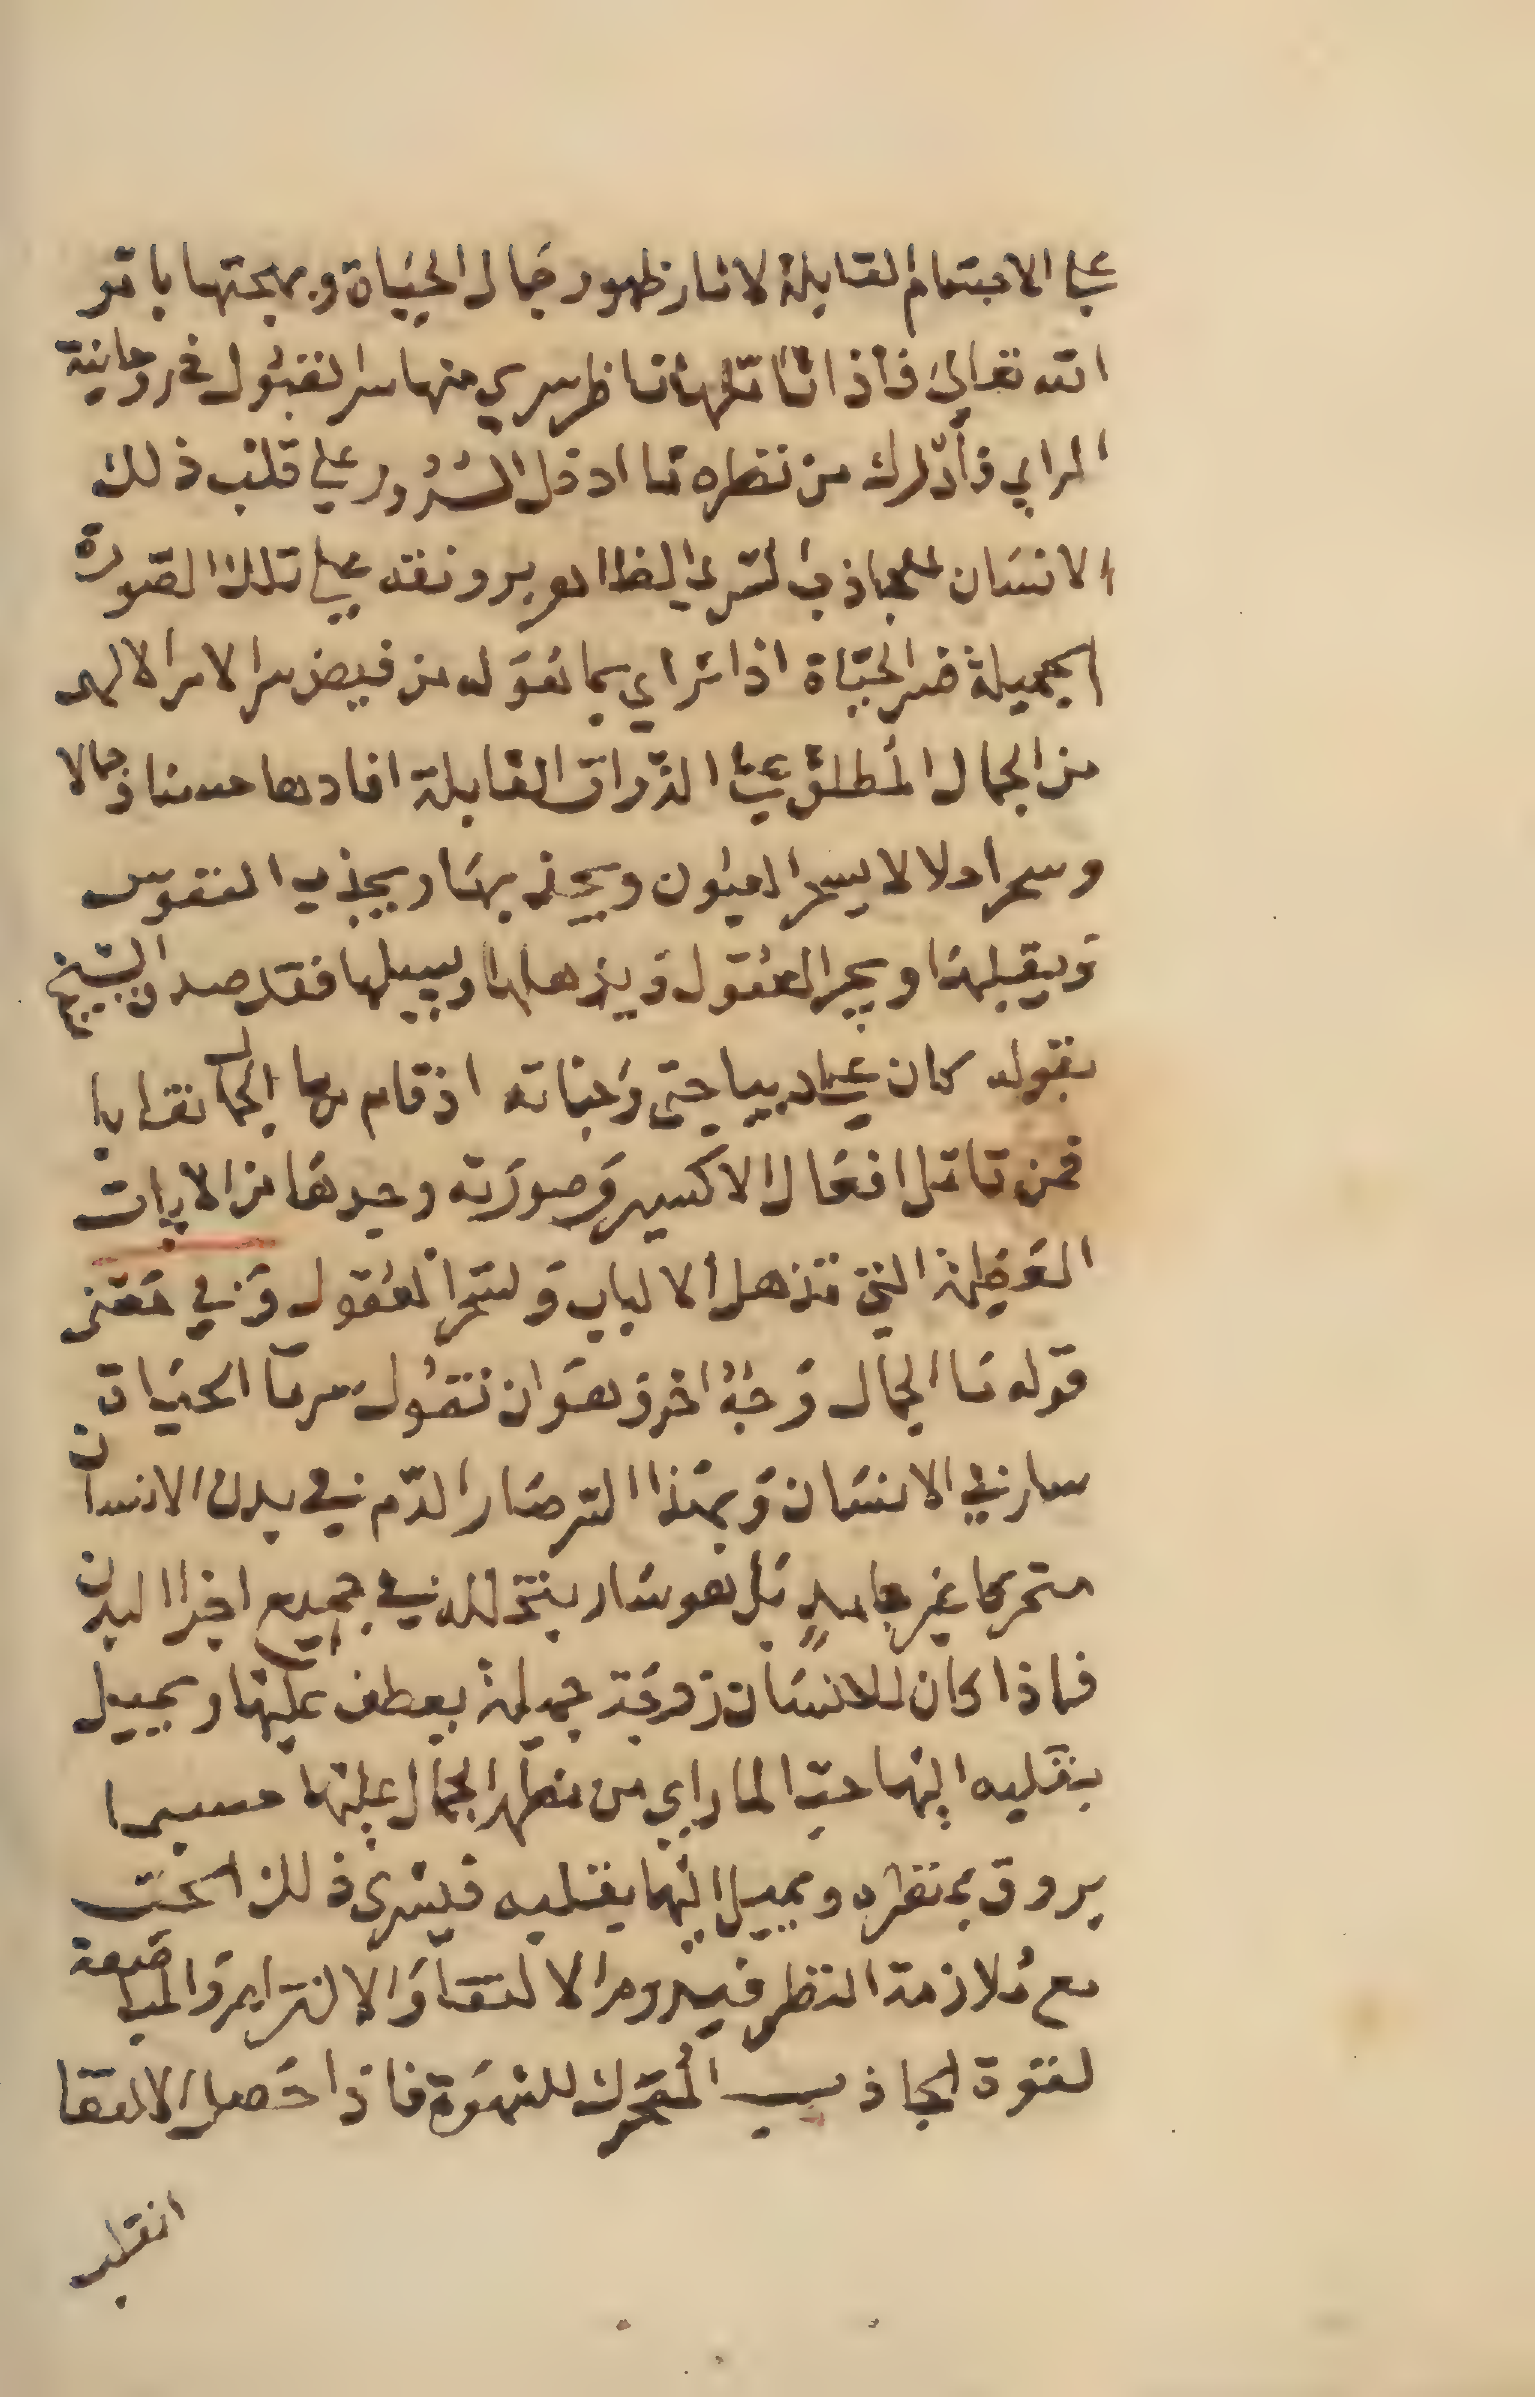 على الاجسام القابلة لاثار ظهور جمال الحياة وبهجتها بامر
الله تعالى فاذا تاملها ناظر سرى منها سر القبول في روحانية
الراي فادرك من نظره ما ادخل السرور على قلب ذلك
الانسان بجاذب السر الظاهر برونقه على تلك الصورة
الجميلة فسر الحياة اذا تراي بما نقوله من فيض سر الامر الالهي
من الجمال المطلق على الذوات القابلة افادها حسنا وجمالا
وسحرا ودلالا يسحر العيون ويجذبها ويجذب النفوس
ويقبلها ويحير العقول ويذهلها ويسبيلها فقد صدق الشيخ
بقوله كان على ديباجتي وجناته اذ قام بها الجمال نقابا
فمن تامل افعال الاكسير وصورته وجدها من الايات
العظيمة التي تذهل الالباب وتسحر العقول وفي معنى
قوله ما الجمال وجه اخر وهو ان نقول سر ما الحياة
سار في الانسان وبهذا السر صار الدم في بدن الانسان
متحركا غير جامد بل هو سار يتخلله في جميع اجزا البدن
فاذا كان للانسان زوجة جميلة يعطف عليها ويميل
بقلبه اليها حبا لما راي من مظهر الجمال عليها حسبما
يروق بمنظره ويميل اليها بقلبه فيسري ذلك الحب
مع ملازمة النظر فيروم الالتقا والالتزام والمباضعة
لقوة الجاذب المتحرك للشهوة فاذا حصل الالتقا
انقلب